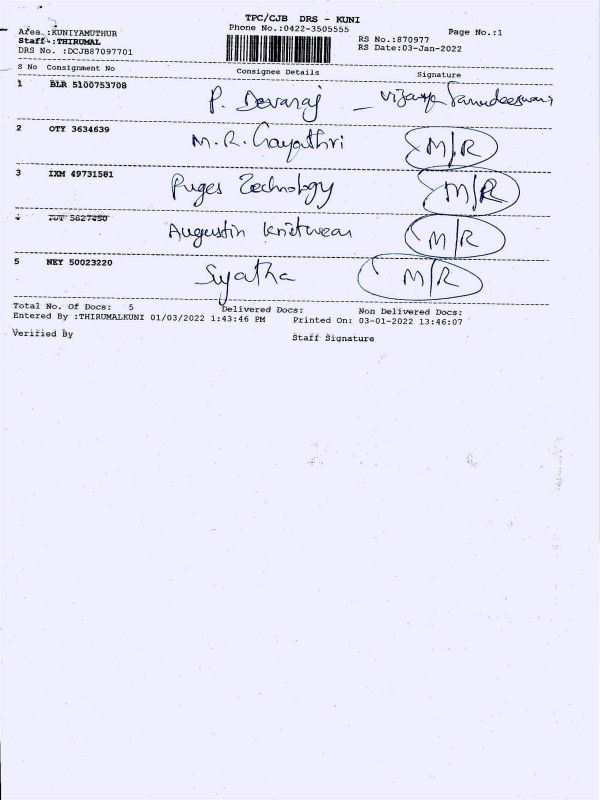 TPC/CJB DRS - KUNI
Area :KUNIYAMUTHUR
Phone No.:0422-3505555
Page No.:1
Staff :THIRUMAL
RS No.:870977
DRS No. :DCJB87097701
RS Date:03-Jan-2022
S No Consignment No Consignee Details Signature
1 BLR 5100753708 P. Devaraj - vijaya
2 OTY 3634639 M.R. Gayathri M/R
3 IXM 49731581 Puges Technology M/R
4 5827450 Augustin knitwear M/R
5 NEY 50023220 M/R
Total No. Of Docs: 5 Delivered Docs: Non Delivered Docs:
Entered By :THIRUMALKUNI 01/03/2022 1:43:46 PM Printed On: 03-01-2022 13:46:07
Verified By Staff Signature